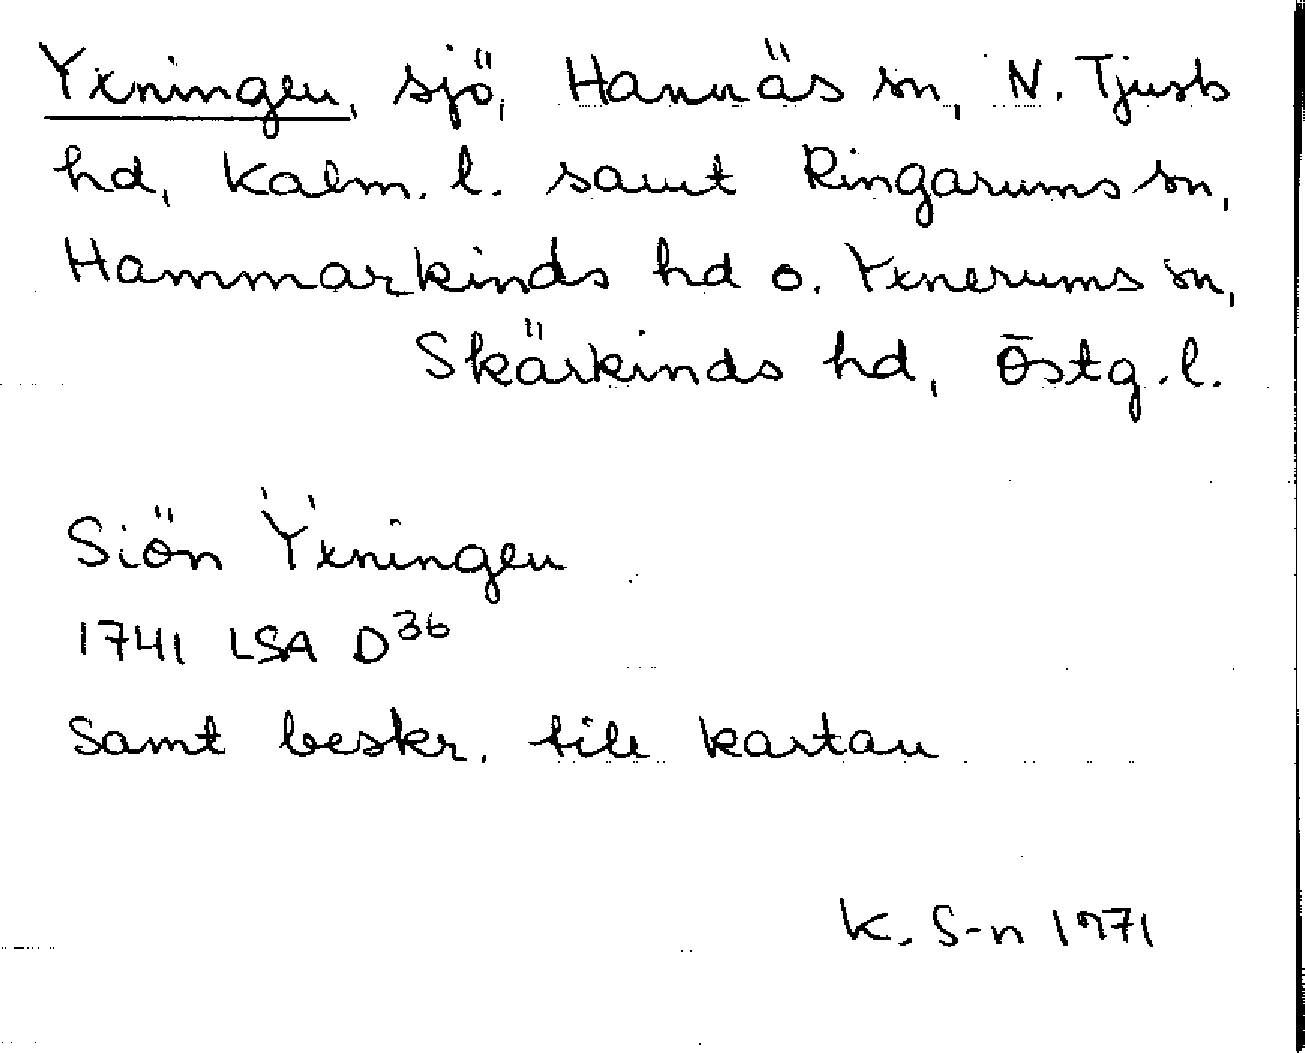 Yxningen, sjö, Hannäs sn, N. Tjusts
hd, Kalm. l. samt Ringarums sn,
Hammarkinds hd o. Yxnerums sn,
Skärkinds hd, Östg. l.
Siön Ÿxningen
1741 LSA D36
samt beskr. till kartan
K. S-n 1971